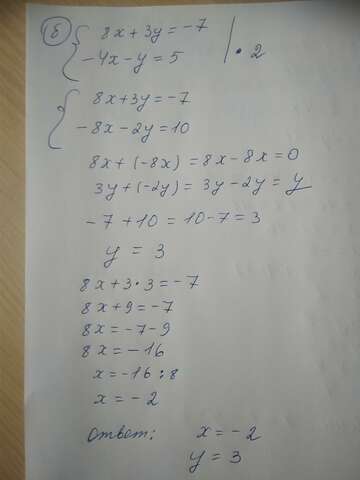 б) 8x+3y=-7
-4x-y=5 | • 2
8x+3y=-7
-8x-2y=10
8x+(-8x)=8x-8x=0
3y+(-2y)=3y-2y=y
-7+10=10-7=3
y=3
8x+3•3=-7
8x+9=-7
8x=-7-9
8x=-16
x=-16:8
x=-2
Ответ: x=-2
y=3